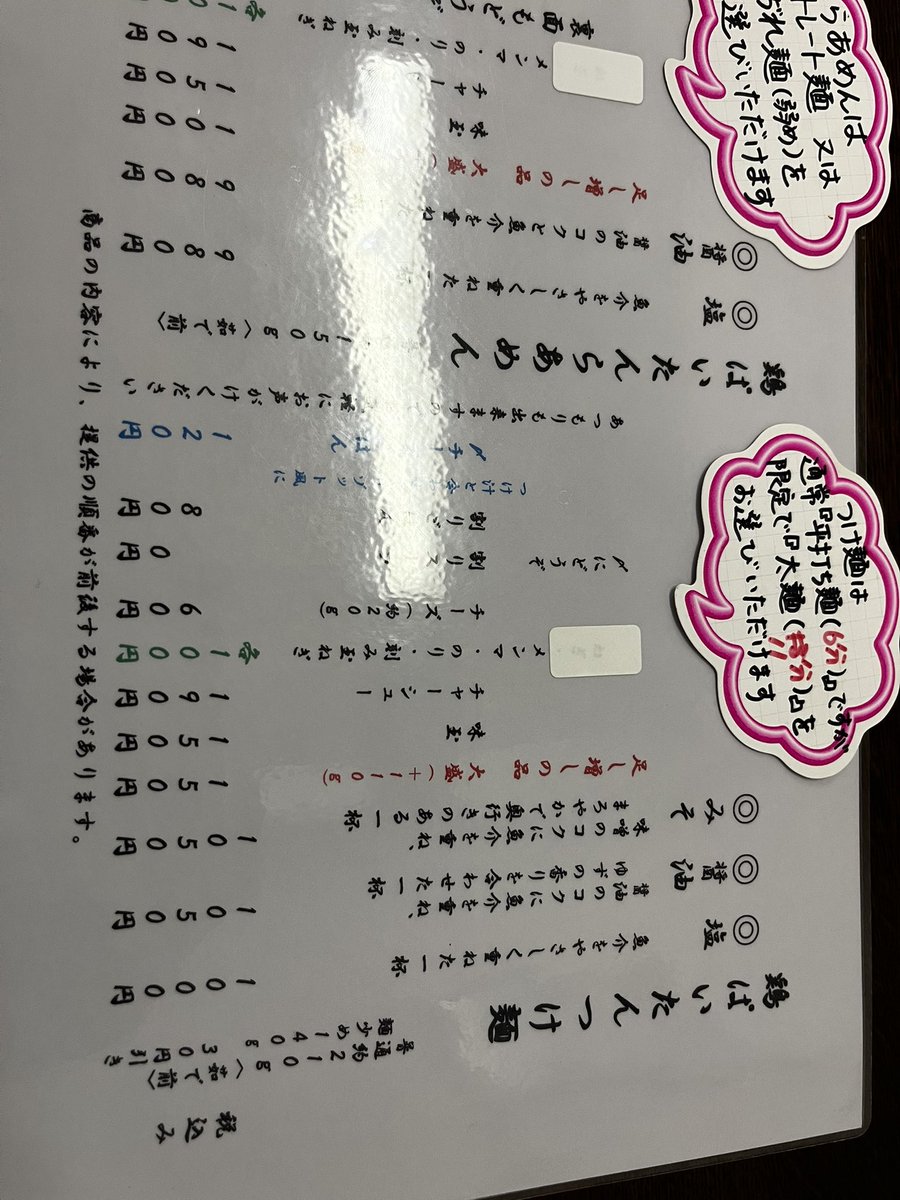 税込み
鶏ぱいたんつけ麺
普通約210g〈茹で前〉
麺少め140g 30円引き
◎塩 魚介をやさしく重ねた一杯 1000円
◎醤油 醤油のコクに魚介を重ね、
ゆずの香りを合わせた一杯 1050円
◎みそ 味噌のコクに魚介を重ね、
まろやかで奥行きのある一杯 1050円
足し増しの品 大盛(+110g) 150円
味玉 150円
チャーシュー 190円
メンマ・のり・刻み玉ねぎ 各100円
チーズ(約20g) 60円
〆にどうぞ 割りス 0円
割りご 80円
つけ汁と ゾット風に
〆チー はん 120円
あつもりも出来ます にお声がけください
鶏ぱいたんらあめん
150g〈茹で前〉
◎塩 魚介をやさしく重ねた 980円
◎醤油 醤油のコクと魚介を重ね 980円
足し増しの品 大盛 100円
味玉 150円
チャー 190円
メンマ・のり・刻み玉ねぎ 各10
裏面もどうぞ
商品の内容により、提供の順番が前後する場合があります。
つけ麺は
通常『平打ち麺(6分)』ですが
限定で『太麺(   分)』を
お選びいただけます
らあめんは
トレート麺 又は
れ麺(弱め)を
選びいただけます